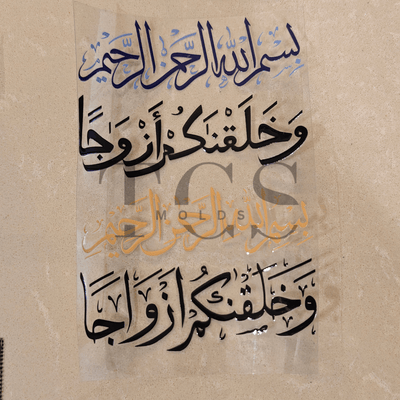 بسم الله الرحمن الرحيم
وَخَلَقْنَٰكُمْ أَزْوَٰجًا
TCS
MOLDS
بسم الله الرحمن الرحيم
وَخَلَقْنَكُمْ اَزْوَاجَا